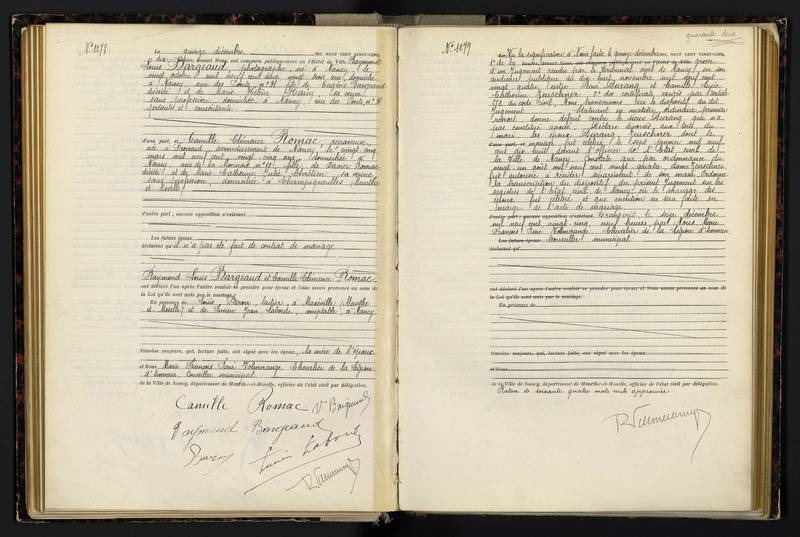 N° 1078.
Le quinze décembre MIL NEUF CENT VINGT-CINQ,
dix heures, devant Nous, ont comparu publiquement en l'Hôtel de Ville Raymond
Louis Bargeaud, photographe, né à Nancy, le
vingt octobre mil neuf cent deux, vingt trois ans, domicilié
à Nancy, rue des Ponts, n° 31, fils de Bargeaud
décédé et de Marie sa veuve
sans profession, domiciliée à Nancy, rue des Ponts, n° 31
présente et consentante
d'une part, et Camille Clémence Romac, repasseuse,
née à arrondissement de Nancy, le vingt cinq
mars mil neuf cent, vingt cinq ans, domiciliée à
Nancy, rue de la Monnaie n° fille de Romac
décédé et de Marie Catherine Julie Chrétien, sa veuve,
sans profession, domiciliée à Champigneulles (Meurthe
et Moselle)
d'autre part; aucune opposition n'existant
Les futurs époux
déclarent qu'il n'a pas été fait de contrat de mariage
Raymond Louis Bargeaud et Camille Clémence Romac,
ont déclaré l'un après l'autre vouloir se prendre pour époux et Nous avons prononcé au nom de
la Loi qu'ils sont unis par le mariage.
En présence de Louis à Maxéville (Meurthe
et Moselle) et de Lucien Jean Laborde, comptable, à Nancy
témoins majeurs, qui, lecture faite, ont signé avec les époux, la mère de l'époux
et Nous Marie François René Volmerange Chevalier de la Légion
d'honneur Conseiller municipal
de la Ville de Nancy, département de Meurthe-et-Moselle, officier de l'état civil par délégation.
Camille Romac Vve Bargeaud
Raymond Bargeaud
Lucien Laborde
R Volmerange
quarante deux
N° 1079
Vu la signification à Nous faite le quinze décembre MIL NEUF CENT VINGT-CINQ,
heures, devant Nous, ont comparu publiquement en l'Hôtel de Ville grosse
d'un jugement rendu par le Tribunal civil de Nancy, en son
audience publique du dix huit novembre mil neuf cent
vingt quatre, entre René Durang et Camille Lucie
Catherine Zeuschner, 2° des certificats exigés par l'article
du code civil, Nous transcrivons ici le dispositif du dit
jugement statuant en matière ordinaire, premier
ressort donne défaut contre le sieur Durang qui n'a
pas constitué avoué. Déclare divorcés, aux torts du
mari les époux Durang Zeuschner dont le
d'une part, et mariage fut célébré le sept janvier mil neuf
cent dix huit devant l'Officier de l'Etat civil de
la Ville de Nancy. Constate que par ordonnance du
vingt un août mil neuf cent vingt quatre, dame Zeuschner
fut autorisée à résider séparément de son mari. Ordonne
la transcription du dispositif du présent jugement sur les
registres de l'état civil de Nancy où le mariage des
époux fut célébré et que mention en sera faite en
marge de l'acte de mariage.
d'autre part; aucune opposition n'existant. Transcrit le seize décembre
mil neuf cent vingt cinq, neuf heures par Nous Marie
François René Volmerange Chevalier de la Légion d'honneur
Les futurs époux Conseiller municipal
déclarent qu'
ont déclaré l'un après l'autre vouloir se prendre pour époux et Nous avons prononcé au nom de
la Loi qu'ils sont unis par le mariage.
En présence de
témoins majeurs, qui, lecture faite, ont signé avec les époux
et Nous
de la Ville de Nancy, département de Meurthe-et-Moselle, officier de l'état civil par délégation.
Rature de soixante quatre mots nuls approuvée
R Volmerange